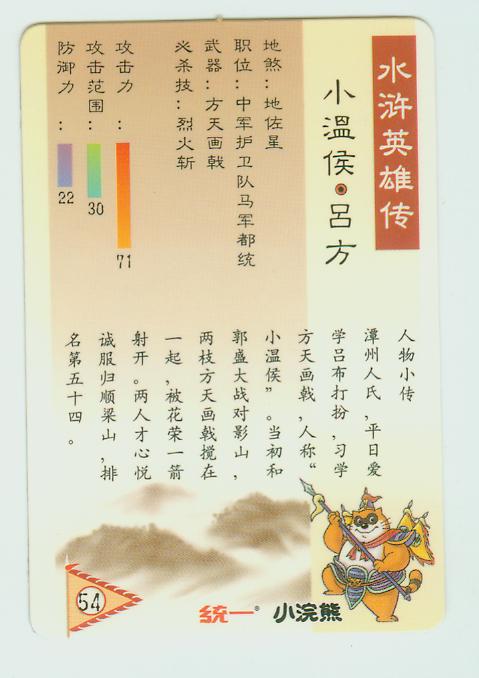 水浒英雄传
小温侯·吕方
地煞：地佐星
职位：中军护卫队马军都统
武器：方天画戟
必杀技：烈火斩
攻击力：71
攻击范围：30
防御力：22
人物小传
潭州人氏，平日爱
学吕布打扮，习学
方天画戟，人称“
小温侯”。当初和
郭盛大战对影山，
两枝方天画戟搅在
一起，被花荣一箭
射开。两人才心悦
诚服归顺梁山，排
名第五十四。
54
统一® 小浣熊